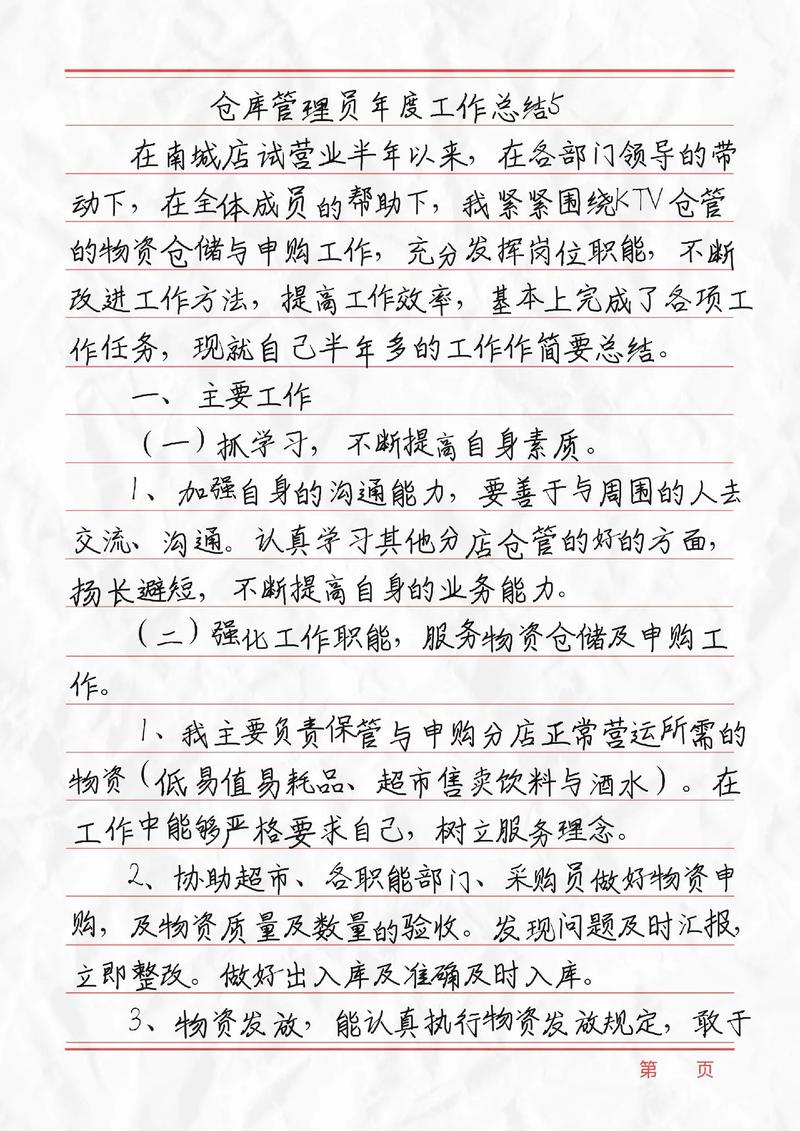 仓库管理员年度工作总结5
在南城店试营业半年以来，在各部门领导的带
动下，在全体成员的帮助下，我紧紧围绕KTV仓管
的物资仓储与申购工作，充分发挥岗位职能，不断
改进工作方法，提高工作效率，基本上完成了各项工
作任务，现就自己半年多的工作作简要总结。
一、主要工作
（一）抓学习，不断提高自身素质。
1、加强自身的沟通能力，要善于与周围的人去
交流、沟通。认真学习其他分店仓管的好的方面，
扬长避短，不断提高自身的业务能力。
（二）强化工作职能，服务物资仓储及申购工
作。
1、我主要负责保管与申购分店正常营运所需的
物资（低易值易耗品、超市售卖饮料与酒水）。在
工作中能够严格要求自己，树立服务理念。
2、协助超市、各职能部门、采购员做好物资申
购，及物资质量及数量的验收。发现问题及时汇报，
立即整改。做好出入库及准确及时入库。
3、物资发放，能认真执行物资发放规定，敢于
第 页